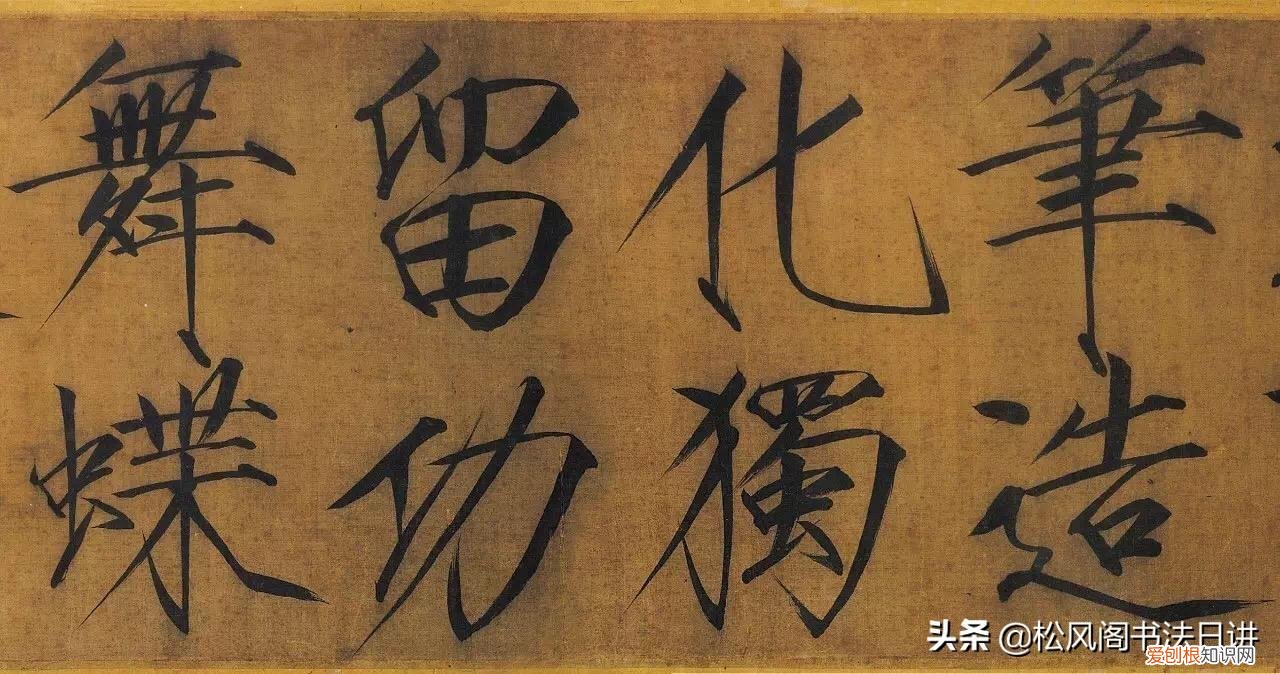 筆造
化獨
留功
舞蝶
头条 @松风阁书法日讲
爱刨根知识网